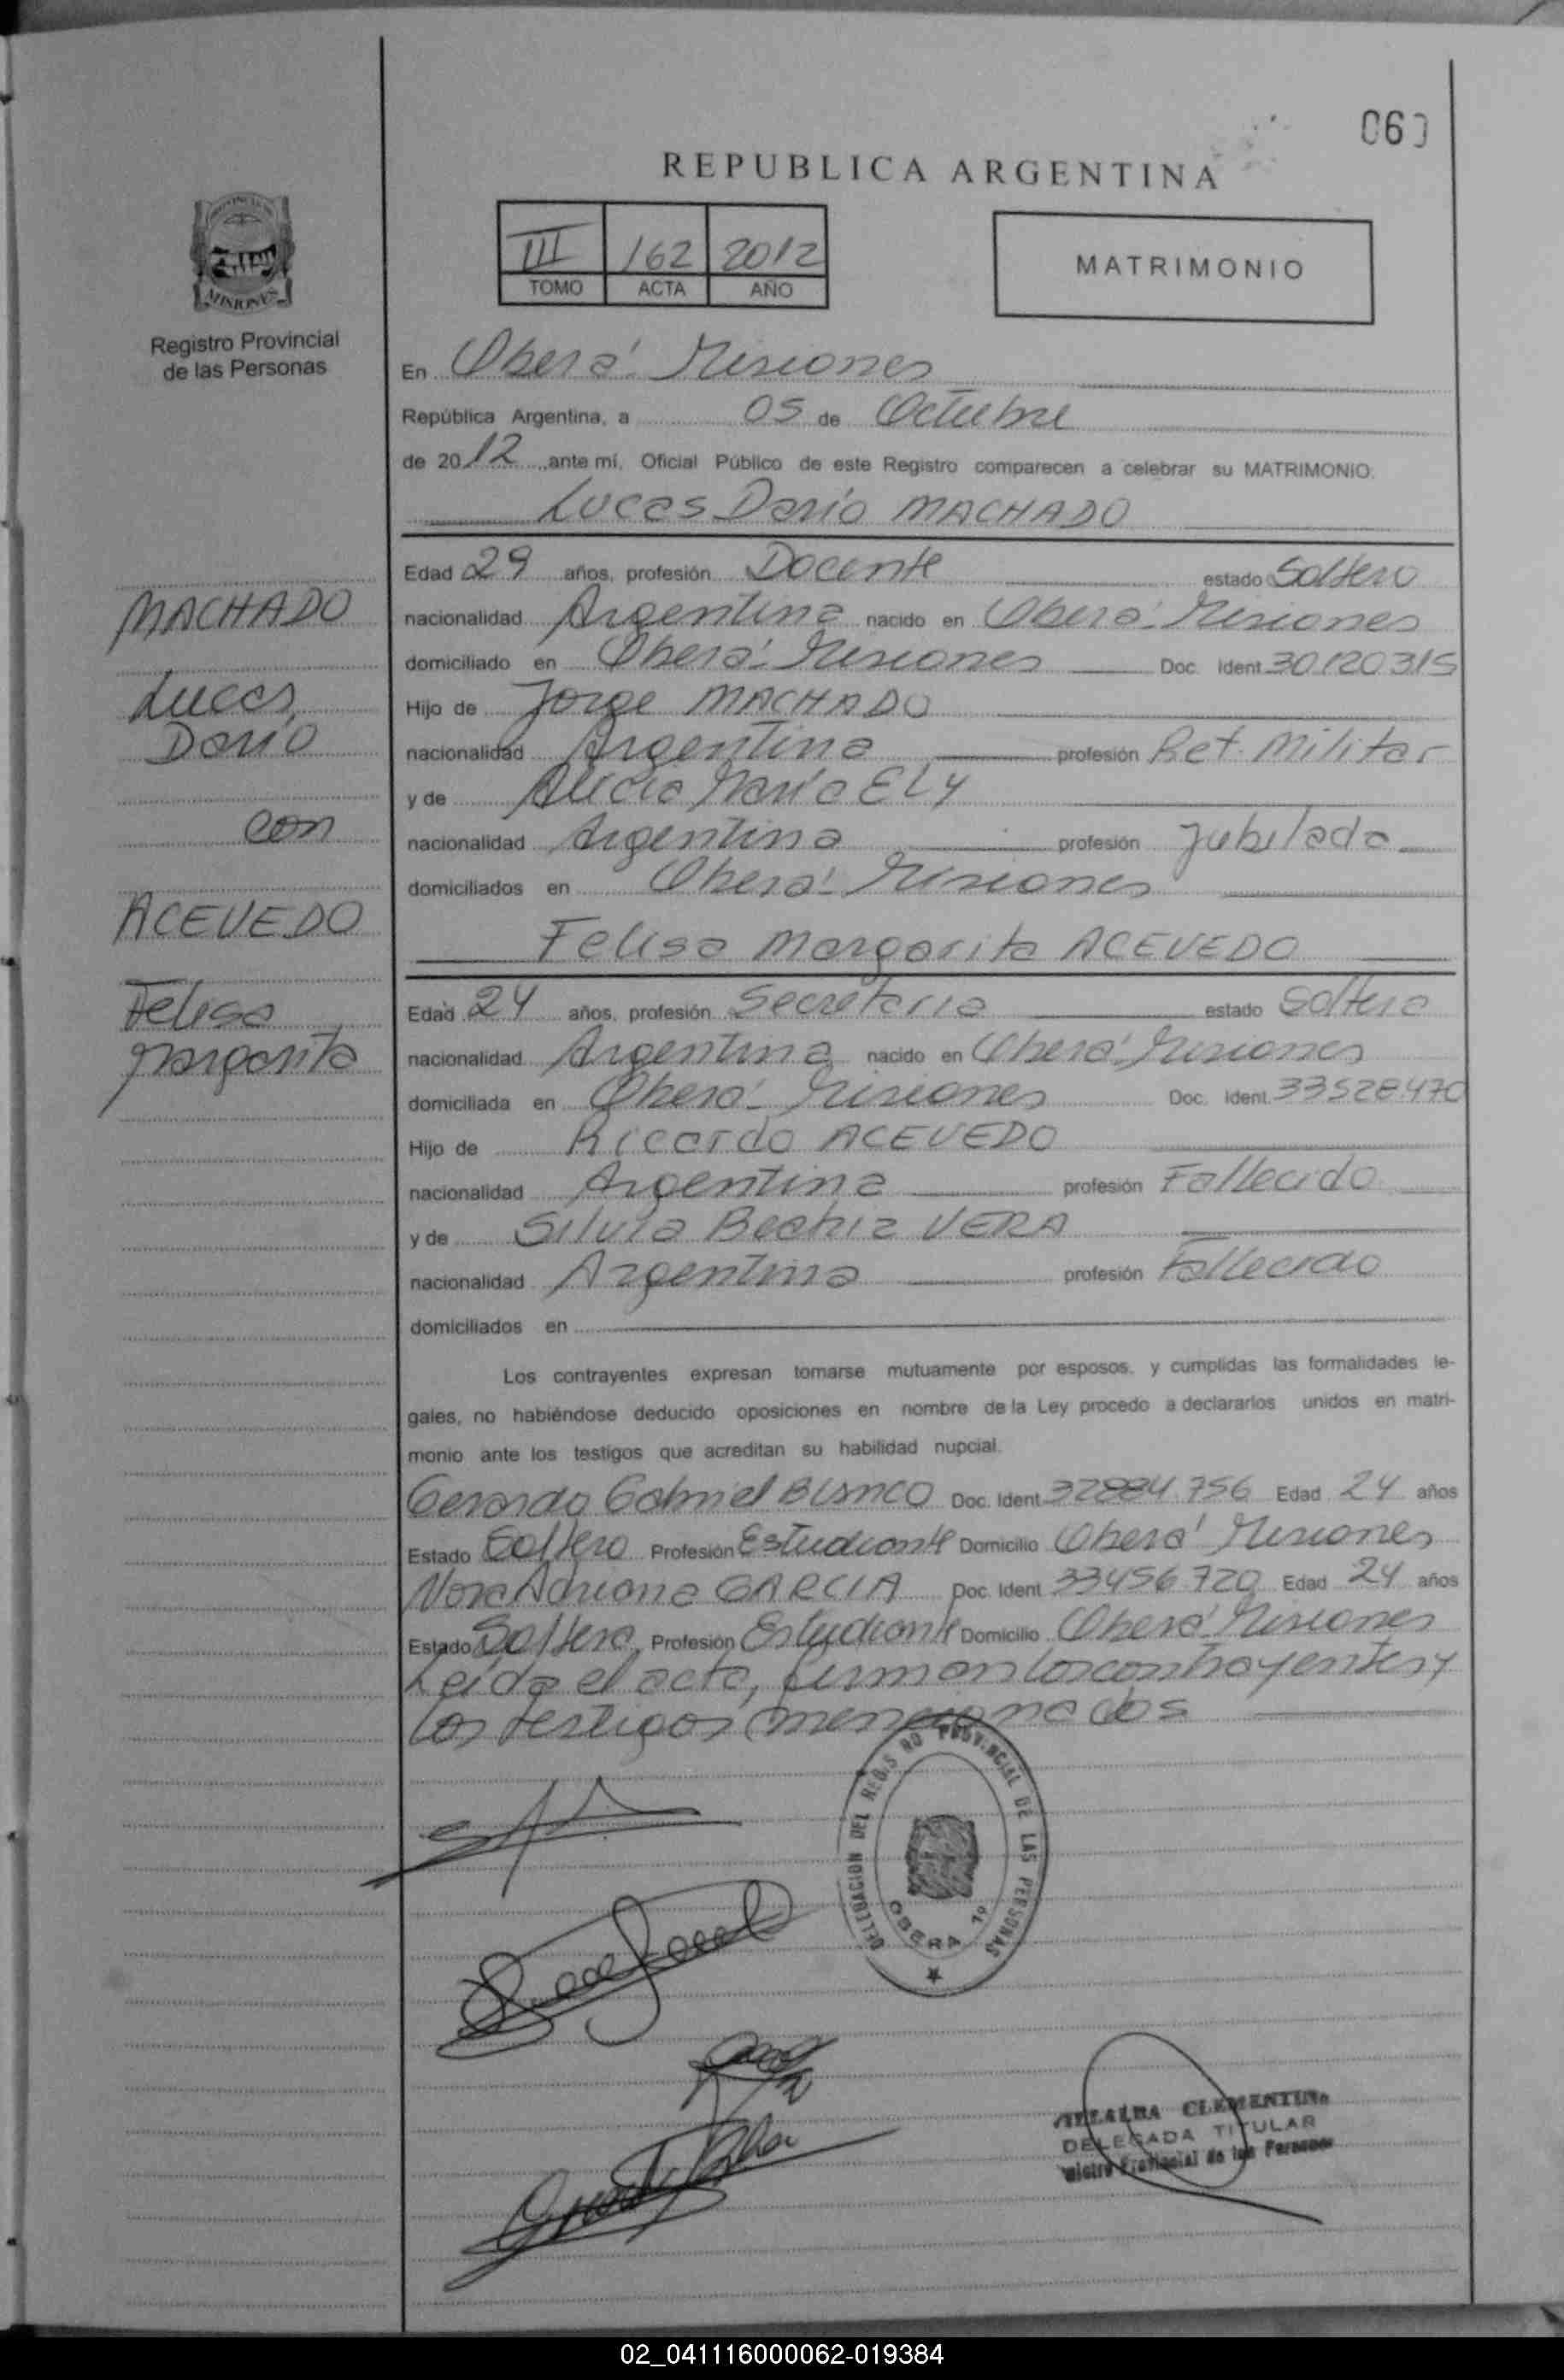 REPUBLICA ARGENTINA
III 162 2012
TOMO ACTA AÑO
MATRIMONIO
Registro Provincial
de las Personas
En Oberá - Misiones
República Argentina, a 05 de Octubre
de 2012, ante mí, Oficial Público de este Registro comparecen a celebrar su MATRIMONIO:
Lucas Darío MACHADO
Edad 29 años, profesión Docente estado Soltero
nacionalidad Argentina nacido en Oberá - Misiones
domiciliado en Oberá - Misiones Doc. Ident. 30120315
Hijo de Jorge MACHADO
nacionalidad Argentina profesión Ret. Militar
y de Alicia María ELY
nacionalidad Argentina profesión Jubilada
domiciliados en Oberá - Misiones
Felisa Margarita ACEVEDO
Edad 24 años, profesión Secretaria estado Soltera
nacionalidad Argentina nacido en Oberá - Misiones
domiciliada en Oberá - Misiones Doc. Ident. 33528470
Hijo de Ricardo ACEVEDO
nacionalidad Argentina profesión Fallecido
y de Silvia Beatriz VERA
nacionalidad Argentina profesión Fallecido
domiciliados en
MACHADO
Lucas
Darío
con
ACEVEDO
Felisa
Margarita
Los contrayentes expresan tomarse mutuamente por esposos, y cumplidas las formalidades le-
gales, no habiéndose deducido oposiciones en nombre de la Ley procedo a declararlos unidos en matri-
monio ante los testigos que acreditan su habilidad nupcial.
Gerardo Gabriel BLANCO Doc. Ident. 32884.756 Edad 24 años
Estado Soltero Profesión Estudiante Domicilio Oberá Misiones
Nora Adriana GARCIA Doc. Ident. 33456720 Edad 24 años
Estado Soltera Profesión Estudiante Domicilio Oberá Misiones
Leída el acta, firman los contrayentes y
los testigos mencionados
DELEGACION DEL REGISTRO PROVINCIAL DE LAS PERSONAS
OBERA 1º
VILLALBA CLEMENTINA
DELEGADA TITULAR
Registro Provincial de las Personas
02_041116000062-019384